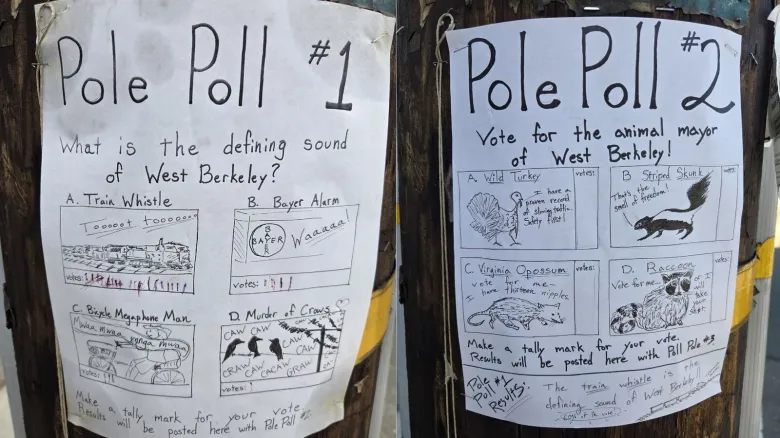 Pole Poll #1
What is the defining sound
of West Berkeley?
A. Train Whistle
Toooot toooooo
votes:
B. Bayer Alarm
BAYER
BAYER
Waaaaa!
votes:
C. Bicycle Megaphone Man
Mwaa mwaa
wonga mwaa
votes:
D. Murder of Crows
CAW CAW CAW
CAW CAW
GRAW CAW CACAW
GRAW
votes:
Make a tally mark for your vote.
Results will be posted here with Pole Poll #2
Pole Poll #2
Vote for the animal mayor
of West Berkeley!
A. Wild Turkey
votes:
I have a
proven record
of slowing traffic.
Safety first!
B. Striped Skunk
votes:
That's the
smell of freedom!
C. Virginia Opossum
votes:
vote for me—
I have thirteen nipples.
D. Raccoon
votes:
Vote for me...
or I
will
take
your
shirt.
Make a tally mark for your vote.
Results will be posted here with Poll Pole #3
Pole Poll #1
Results:
The train whistle is the
defining sound of West Berkeley!